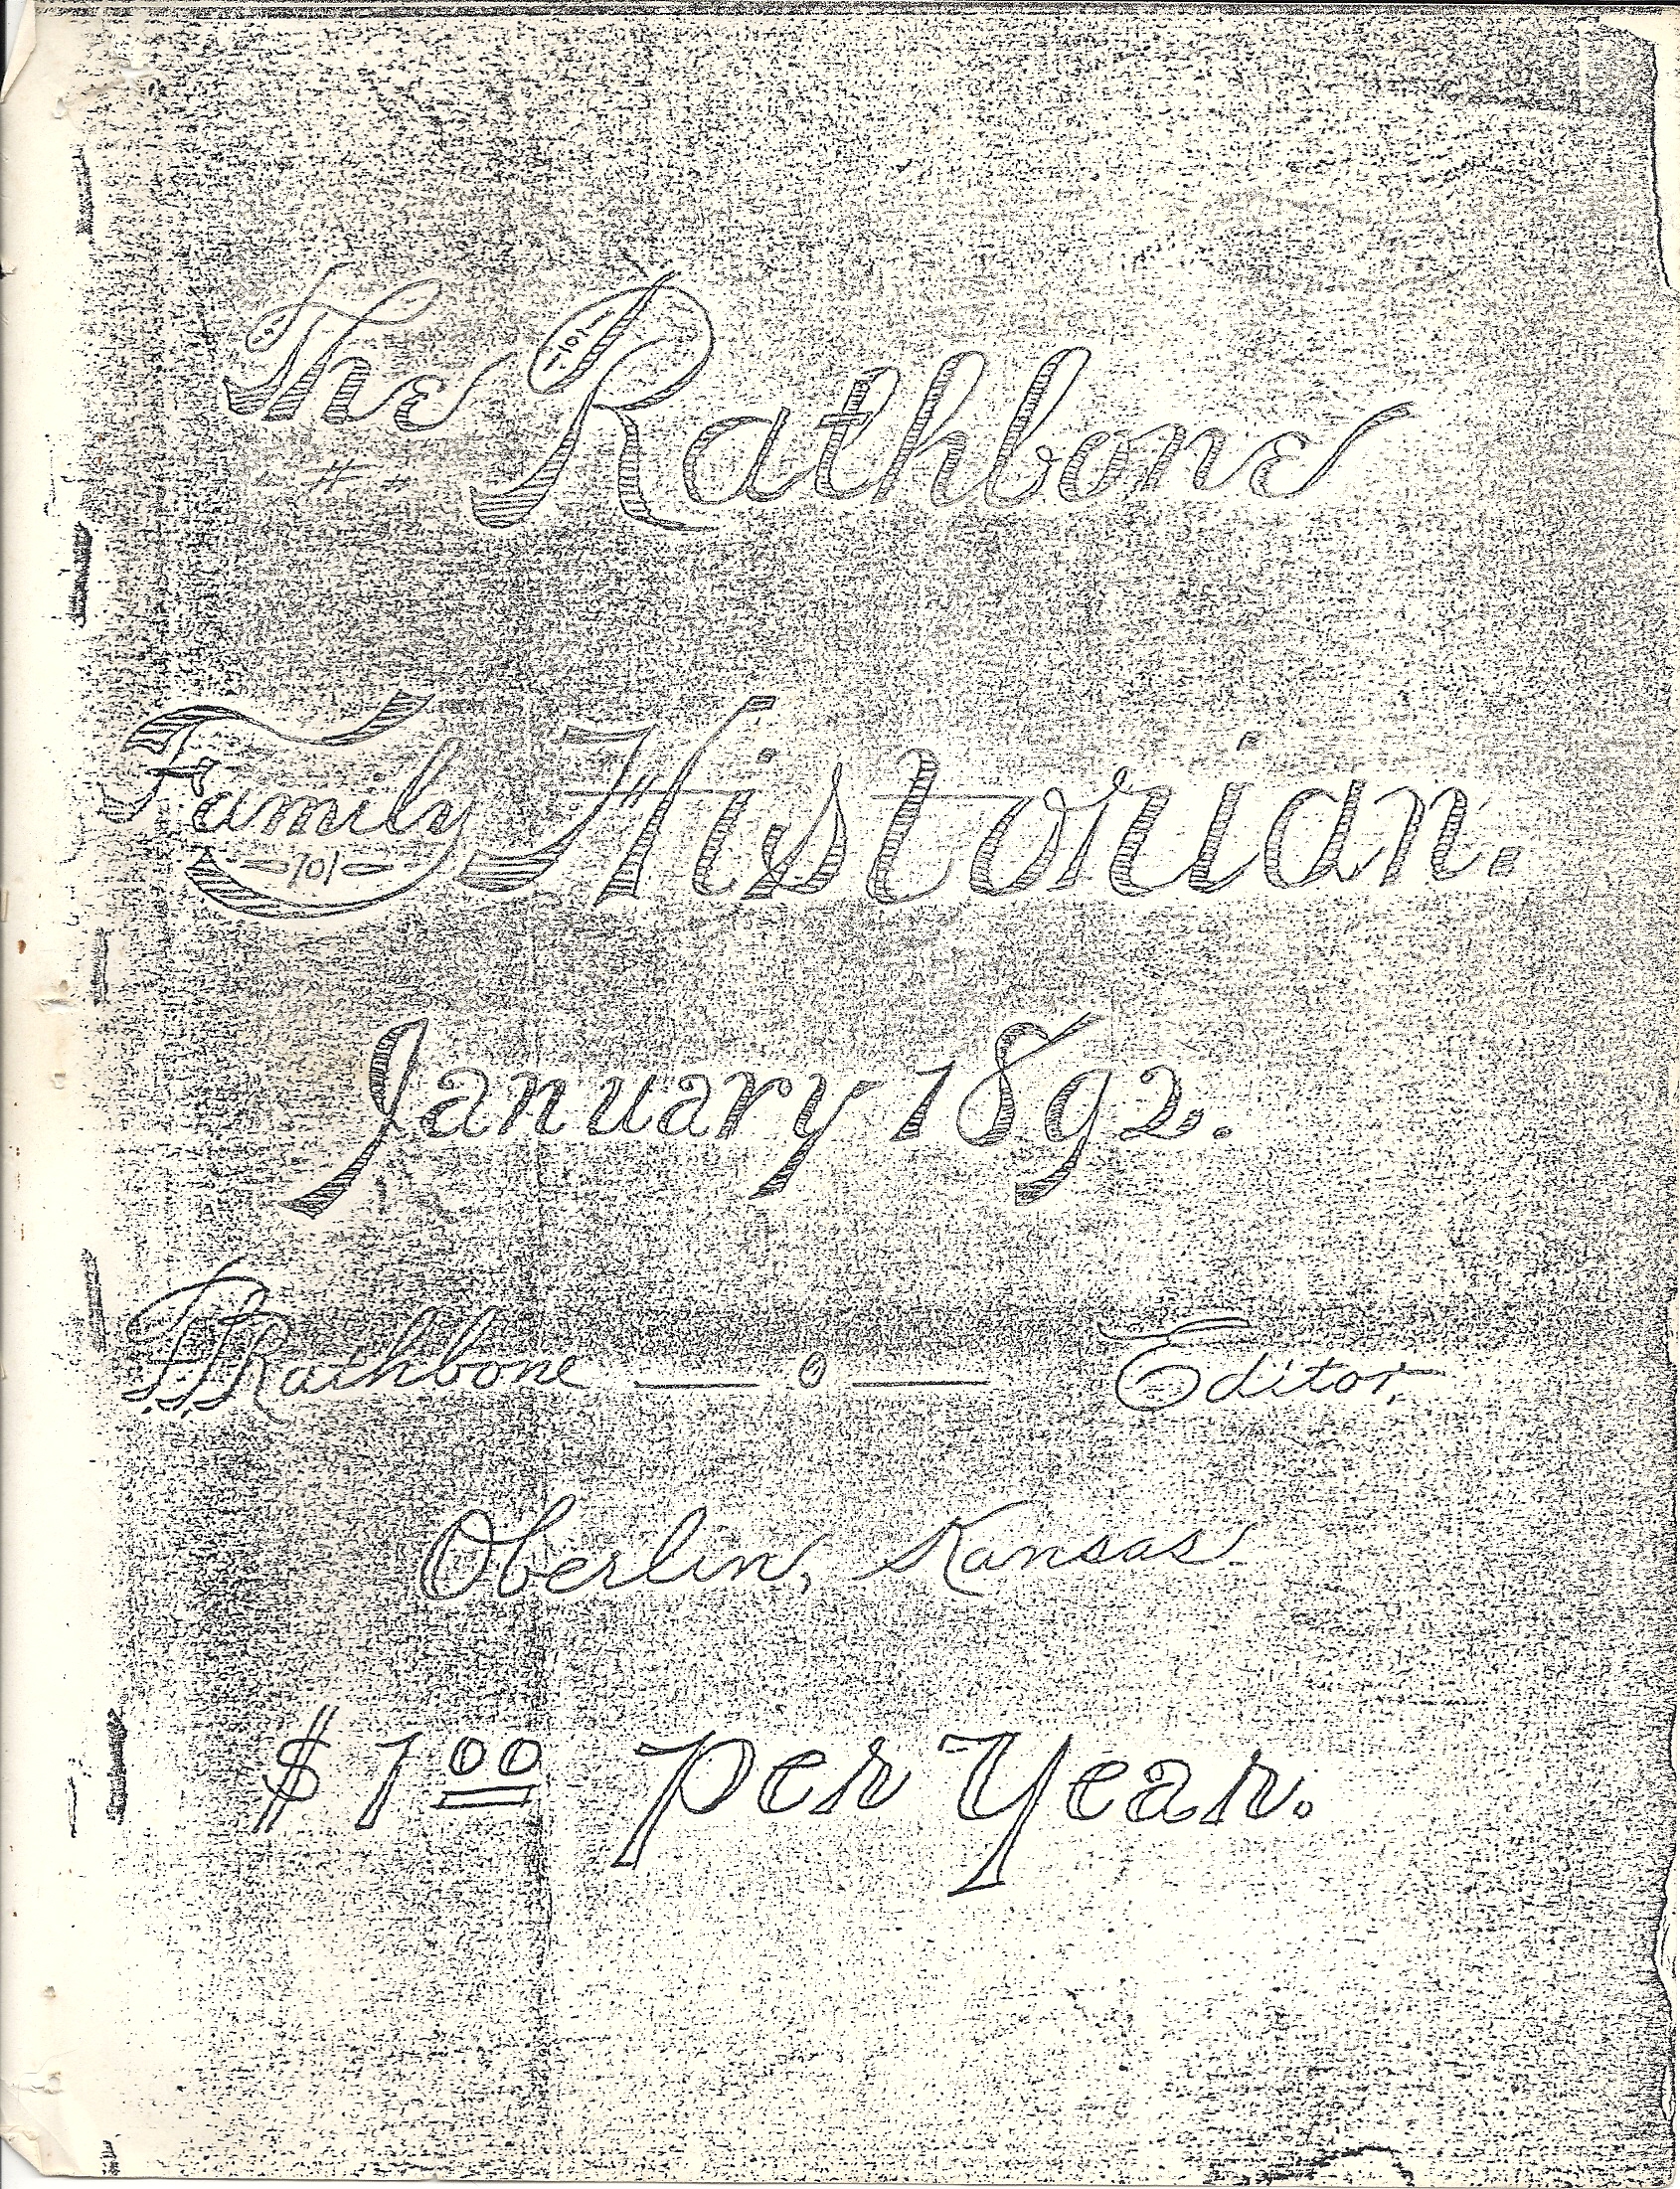 The Rathbone
Family Historian.
January 1892.
Rathbone — o — Editor,
Oberlin, Kansas
$1 00 per Year.